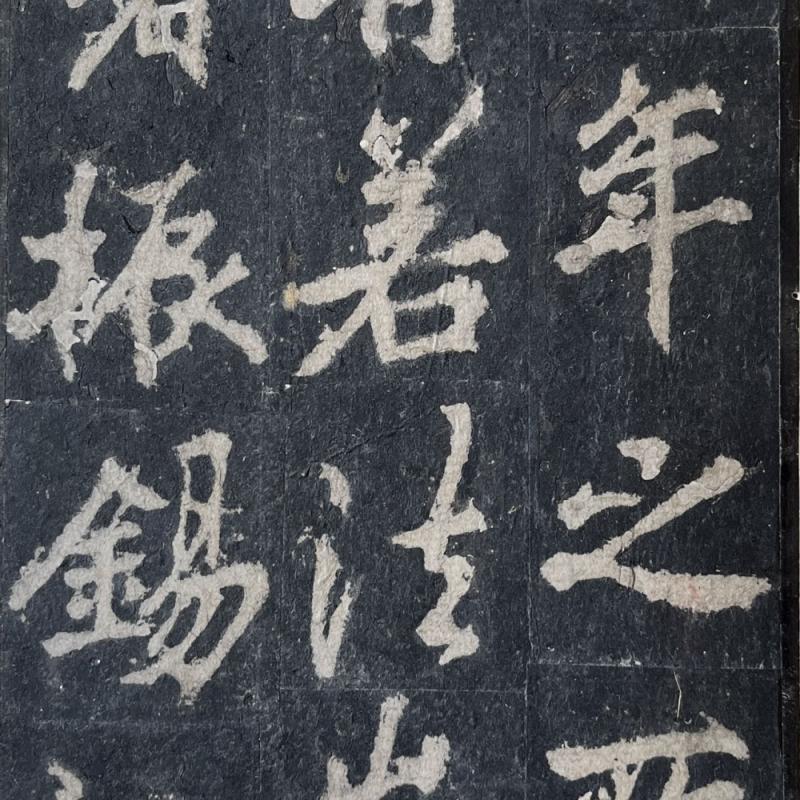 年之
若法
振錫